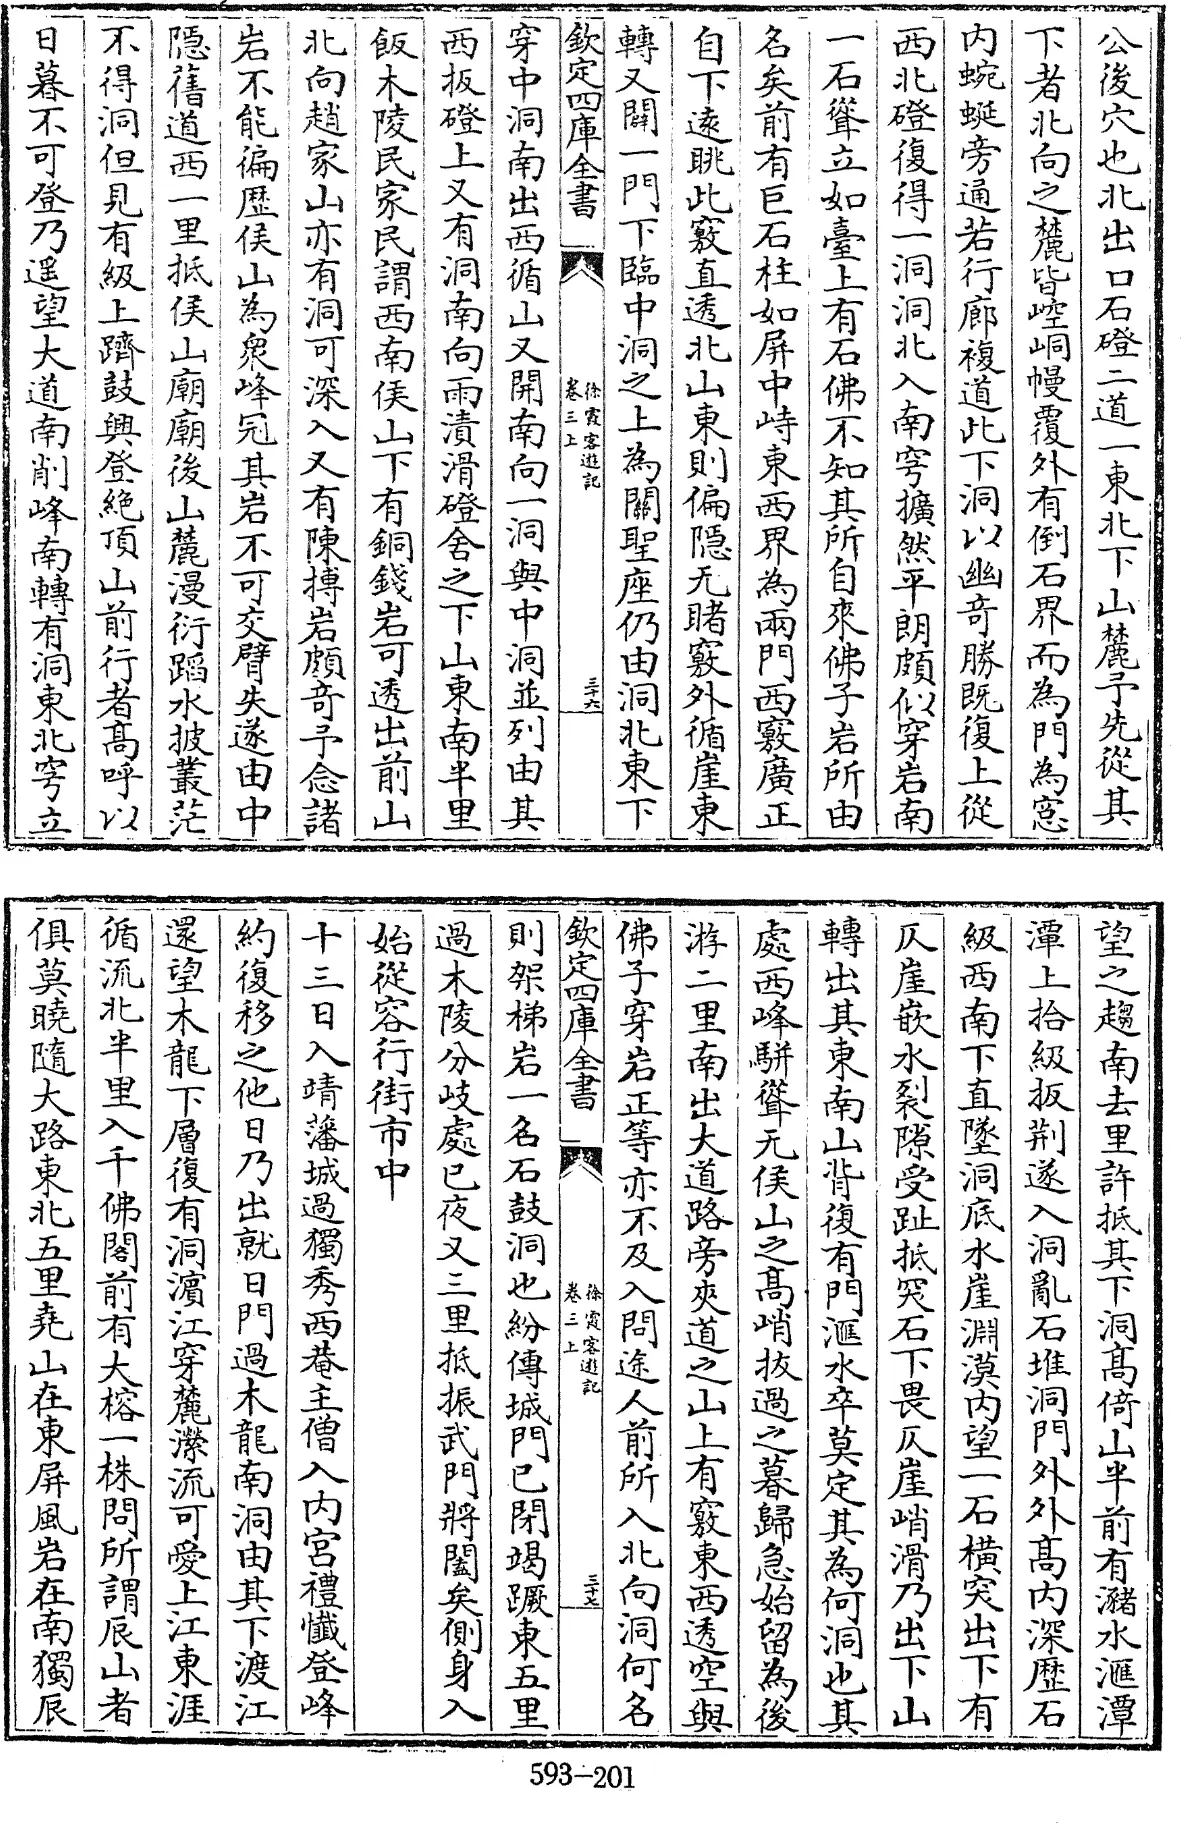 公後穴也北出口石磴二道一東北下山麓予先從其
下者北向之麓皆崆峒幔覆外有倒石界而為門為窓
内蜿蜒旁通若行廊複道此下洞以幽奇勝既復上從
西北磴復得一洞洞北入南穹擴然平朗頗似穿岩南
一石聳立如臺上有石佛不知其所自來佛子岩所由
名矣前有巨石柱如屏中峙東西界為兩門西竅廣正
自下遠眺此竅直透北山東則偏隱无睹竅外循崖東
轉又闢一門下臨中洞之上為關聖座仍由洞北東下
欽定四庫全書
徐霞客遊記
卷三上
三十六
穿中洞南出西循山又開南向一洞與中洞並列由其
西扳磴上又有洞南向雨漬滑磴舍之下山東南半里
飯木陵民家民謂西南侯山下有銅錢岩可透出前山
北向趙家山亦有洞可深入又有陳摶岩頗奇予念諸
岩不能徧歷侯山為衆峰冠其岩不可交臂失遂由中
隱舊道西一里抵侯山廟廟後山麓漫衍蹈水披叢茫
不得洞但見有級上躋鼓興登絶頂山前行者高呼以
日暮不可登乃遥望大道南削峰南轉有洞東北穹立
望之趨南去里許抵其下洞髙倚山半前有瀦水滙潭
潭上拾級扳荆遂入洞亂石堆洞門外外髙内深歷石
級西南下直墜洞底水崖淵漠内望一石横突出下有
仄崖嵌水裂隙受趾抵突石下畏仄崖峭滑乃出下山
轉出其東南山背復有門滙水卒莫定其為何洞也其
處西峰駢聳无侯山之髙峭拔過之暮歸急始留為後
游二里南出大道路旁夾道之山上有竅東西透空與
佛子穿岩正等亦不及入問途人前所入北向洞何名
欽定四庫全書
徐霞客遊記
卷三上
三十七
則架梯岩一名石鼓洞也紛傳城門已閉竭蹶東五里
過木陵分岐處已夜又三里抵振武門將闔矣側身入
始從容行街市中
十三日入靖藩城過獨秀西菴主僧入内宫禮懺登峰
約復移之他日乃出就日門過木龍南洞由其下渡江
還望木龍下層復有洞濱江穿麓瀠流可愛上江東涯
循流北半里入千佛閣前有大榕一株問所謂辰山者
俱莫曉隨大路東北五里堯山在東屏風岩在南獨辰
593-201